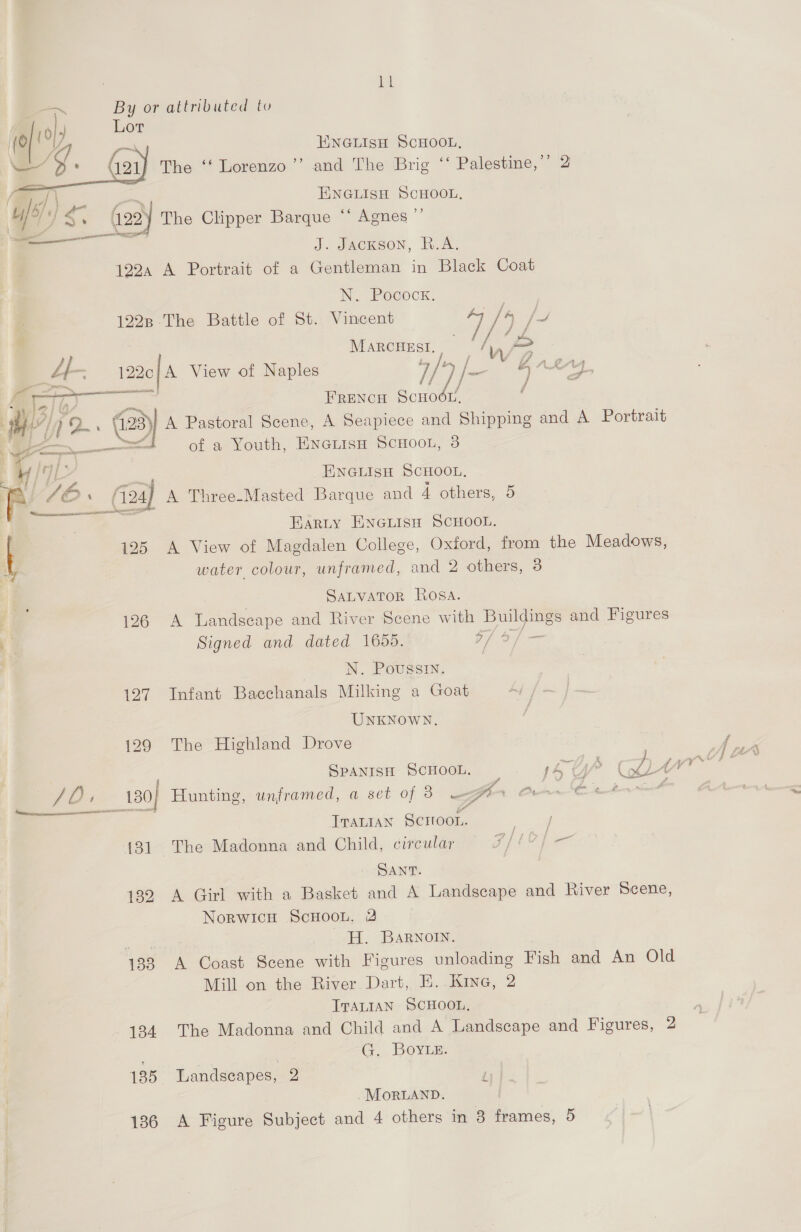 11
By or attributed to
Lot
ENGLISH SCHOOL.
121 The “ Lorenzo ” and The Brig “ Palestine,” 2
ENGLISH SCHOOL.
122 The Clipper Barque “ Agnes ”
J. JACKSON, R.A.
122A A Portrait of a Gentleman in Black Coat
N. POCOCK.
122B The Battle of St. Vincent
MARCHESI.
122C A View of Naples
FRENCH SCHOOL.
123 A Pastoral Scene, A Seapiece and Shipping and A Portrait
of a Youth, ENGLISH SCHOOL, 3
ENGLISH SCHOOL.
124 A Three-Masted Barque and 4 others, 5
EARLY ENGLISH SCHOOL.
125 A View of Magdalen College, Oxford, from the Meadows,
water colour, unframed, and 2 others, 3
SALVATOR ROSA.
126 A Landscape and River Scene with Buildings and Figures
Signed and dated 1655.
N. POUSSIN.
127 Infant Bacchanals Milking a Goat
UNKNOWN.
129 The Highland Drove
SPANISH SCHOOL.
10. 130 Hunting, unframed, a set of 3
ITALIAN SCHOOL.
131 The Madonna and Child, circular
SANT.
132 A Girl with a Basket and A Landscape and River Scene,
NORWICH SCHOOL. 2
H. BARNOIN.
133 A Coast Scene with Figures unloading Fish and An Old
Mill on the River Dart, E. KING, 2
ITALIAN SCHOOL.
134 The Madonna and Child and A Landscape and Figures, 2
G. BOYLE.
135 Landscapes, 2
MORLAND.
136 A Figure Subject and 4 others in 3 frames, 5